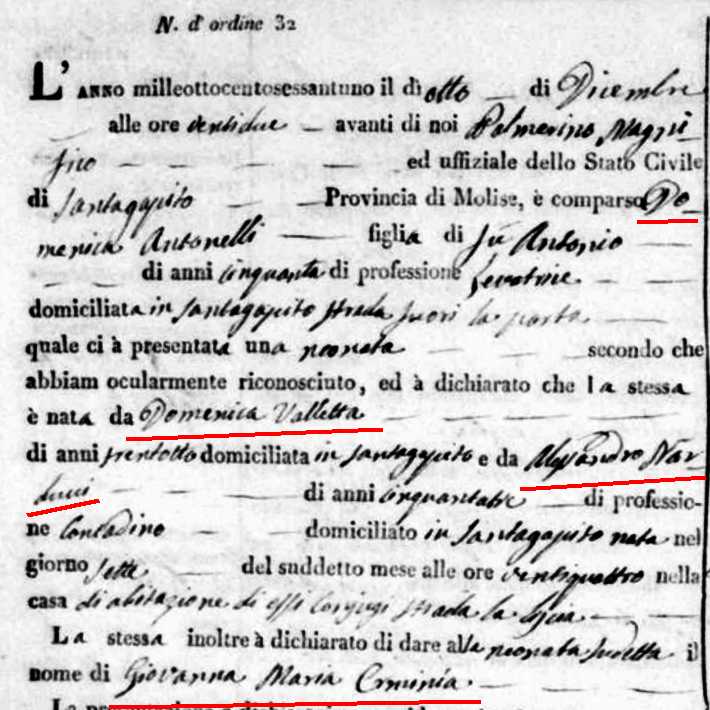 N. d'ordine 32
L'ANNO milleottocentosessantuno il dì otto di Dicembre
alle ore ventidue avanti di noi Palmerino Magni
fico ed uffiziale dello Stato Civile
di Santagapito Provincia di Molise, è comparsa Do
menica Antonelli figlia di fù Antonio
di anni cinquanta di professione Levatrice
domiciliata in Santagapito strada fuori la porta
quale ci à presentata una neonata secondo che
abbiam ocularmente riconosciuto, ed à dichiarato che la stessa
è nata da Domenica Valletta
di anni trentotto domiciliata in Santagapito e da Alessandro Nar
ducci di anni cinquantatre di professio-
ne Contadino domiciliato in Santagapito nata nel
giorno sette del suddetto mese alle ore ventiquattro nella
casa di abitazione di essi Conjugi strada la
La stessa inoltre à dichiarato di dare alla neonata sudetta il
nome di Giovanna Maria
La